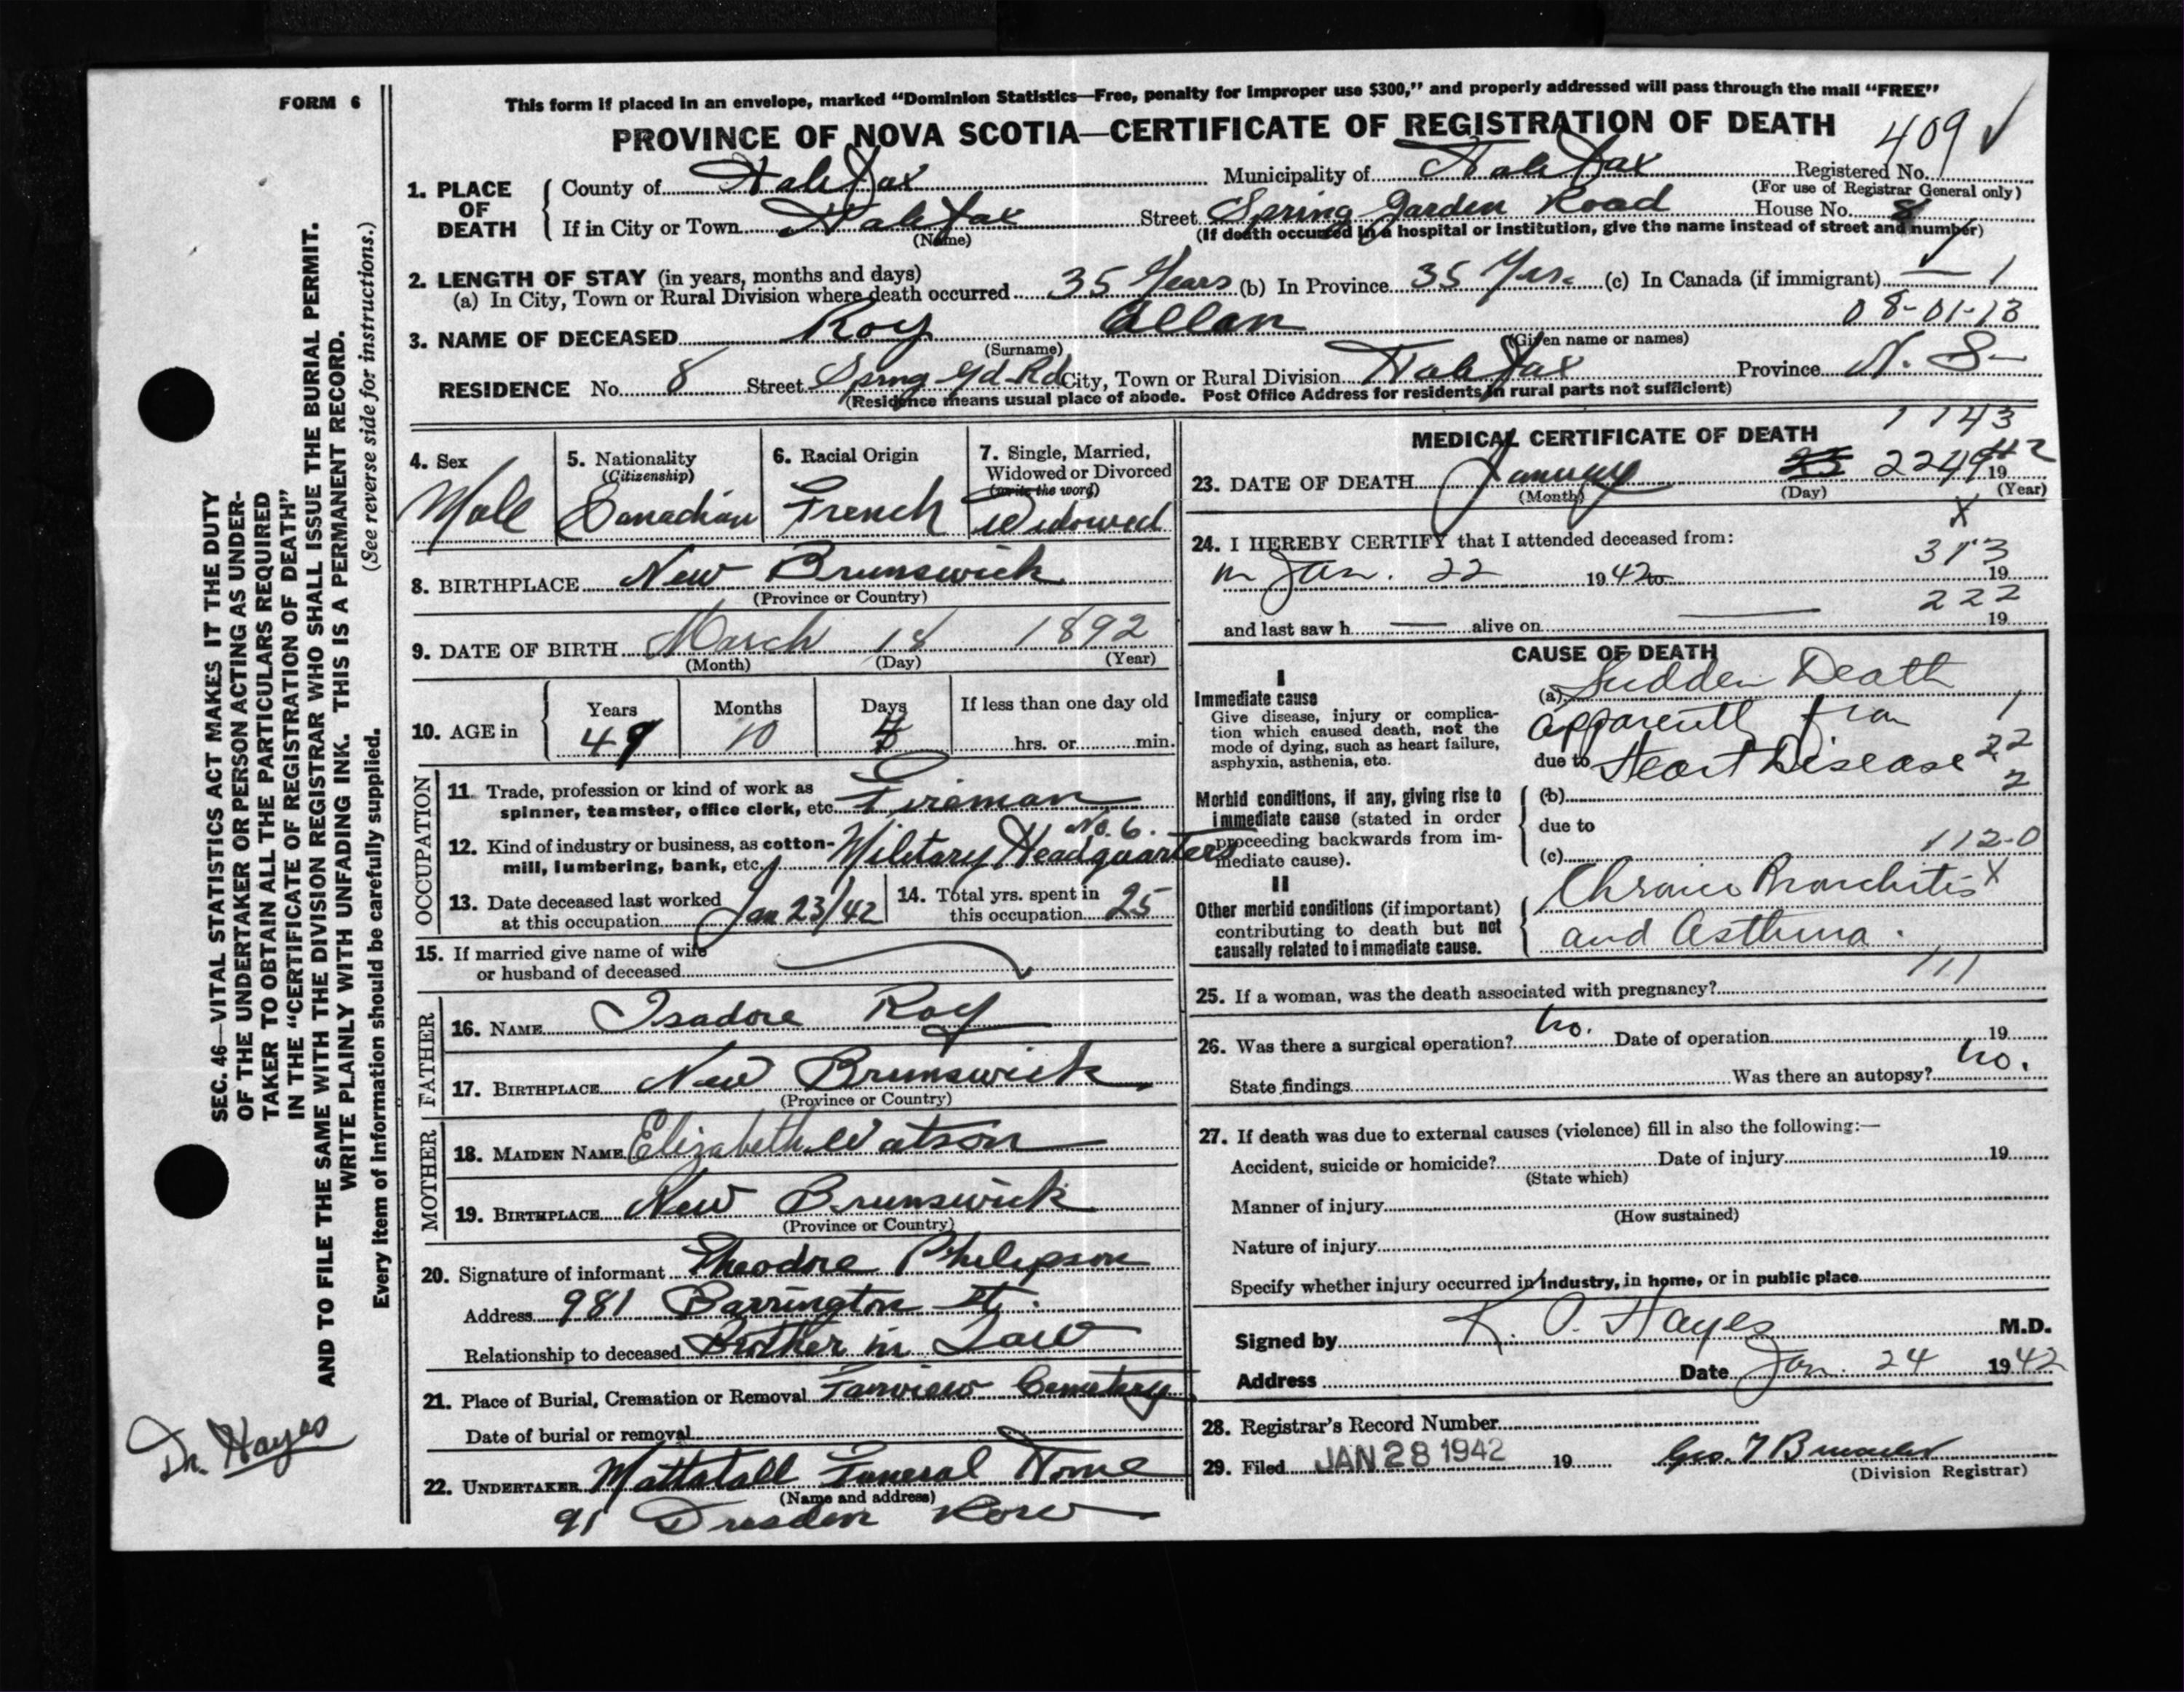 FORM 6
This form if placed in an envelope, marked "Dominion Statistics—Free, penalty for improper use $300," and properly addressed will pass through the mail "FREE"
PROVINCE OF NOVA SCOTIA—CERTIFICATE OF REGISTRATION OF DEATH
409 ✓
1. PLACE OF DEATH
County of Halifax Municipality of Halifax Registered No.
(For use of Registrar General only)
If in City or Town Halifax Street Spring Garden Road House No. 8
(Name) (If death occurred in a hospital or institution, give the name instead of street and number)
2. LENGTH OF STAY (in years, months and days)
(a) In City, Town or Rural Division where death occurred 35 Years (b) In Province 35 Yrs. (c) In Canada (if immigrant) — 1
08-01-13
3. NAME OF DECEASED Roy Allan
(Surname) (Given name or names)
RESIDENCE No. 8 Street Spring Gd. Rd City, Town or Rural Division Halifax Province N. S—
(Residence means usual place of abode. Post Office Address for residents in rural parts not sufficient)
4. Sex
Male
5. Nationality
(Citizenship)
Canadian
6. Racial Origin
French
7. Single, Married,
Widowed or Divorced
(write the word)
Widowed
8. BIRTHPLACE New Brunswick
(Province or Country)
9. DATE OF BIRTH March 18 1892
(Month) (Day) (Year)
10. AGE in
Years Months Days If less than one day old
49 10 4 hrs. or min.
OCCUPATION
11. Trade, profession or kind of work as
spinner, teamster, office clerk, etc. Fireman
12. Kind of industry or business, as cotton-
mill, lumbering, bank, etc. Military Headquarters No. 6.
13. Date deceased last worked
at this occupation Jan 23/42
14. Total yrs. spent in
this occupation 25
15. If married give name of wife
or husband of deceased
FATHER
16. NAME Isadore Roy
17. BIRTHPLACE New Brunswick
(Province or Country)
MOTHER
18. MAIDEN NAME Elizabeth Watson
19. BIRTHPLACE New Brunswick
(Province or Country)
20. Signature of informant Theodore Philipson
Address 981 Barrington St.
Relationship to deceased Brother in Law
21. Place of Burial, Cremation or Removal Fairview Cemetery
Date of burial or removal
22. UNDERTAKER Mattatall Funeral Home
(Name and address)
91 Dresden Row
1143
MEDICAL CERTIFICATE OF DEATH
23. DATE OF DEATH January 23 22 19 42
(Month) (Day) (Year)
X
24. I HEREBY CERTIFY that I attended deceased from:
313
Jan. 22 1942 to 19
222
and last saw h — alive on — 19
CAUSE OF DEATH
I
Immediate cause
Give disease, injury or complica-
tion which caused death, not the
mode of dying, such as heart failure,
asphyxia, asthenia, etc.
(a) Sudden Death
apparently from
due to Heart Disease
1
22
2
Morbid conditions, if any, giving rise to
immediate cause (stated in order
proceeding backwards from im-
mediate cause).
(b)
due to
(c) 112-0
II
Other morbid conditions (if important)
contributing to death but not
causally related to immediate cause.
Chronic Bronchitis X
and Asthma.
111
25. If a woman, was the death associated with pregnancy?
26. Was there a surgical operation? no. Date of operation 19
State findings Was there an autopsy? no.
27. If death was due to external causes (violence) fill in also the following:—
Accident, suicide or homicide? Date of injury 19
(State which)
Manner of injury
(How sustained)
Nature of injury
Specify whether injury occurred in industry, in home, or in public place
Signed by K. O. Hayes M.D.
Address Date Jan. 24 1942
28. Registrar's Record Number
29. Filed JAN 28 1942 19 Geo. F
(Division Registrar)
SEC. 46—VITAL STATISTICS ACT MAKES IT THE DUTY
OF THE UNDERTAKER OR PERSON ACTING AS UNDER-
TAKER TO OBTAIN ALL THE PARTICULARS REQUIRED
IN THE "CERTIFICATE OF REGISTRATION OF DEATH"
AND TO FILE THE SAME WITH THE DIVISION REGISTRAR WHO SHALL ISSUE THE BURIAL PERMIT.
WRITE PLAINLY WITH UNFADING INK. THIS IS A PERMANENT RECORD.
(See reverse side for instructions.)
Every item of information should be carefully supplied.
Dr. Hayes